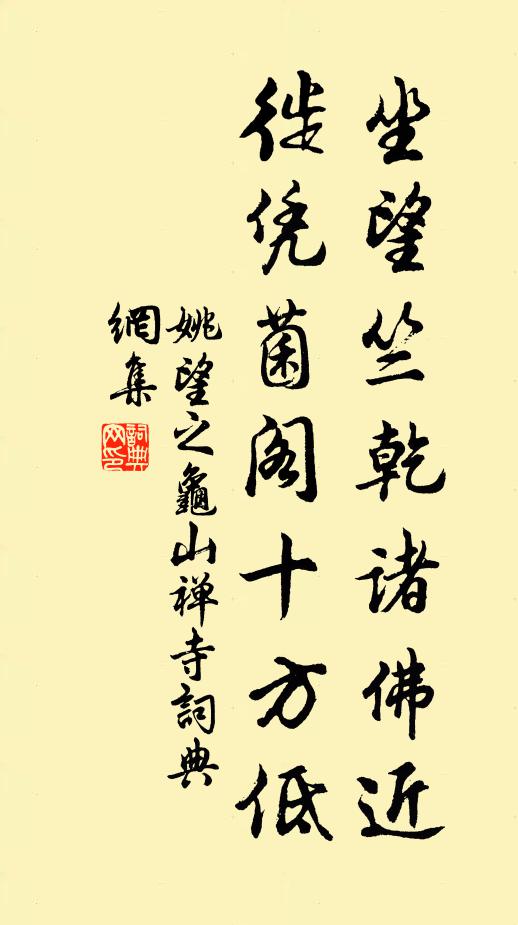 坐望竺乾诸佛近
徙凭菌阁十方低
姚望之龜山禅寺詞典
網集
詞典
网印